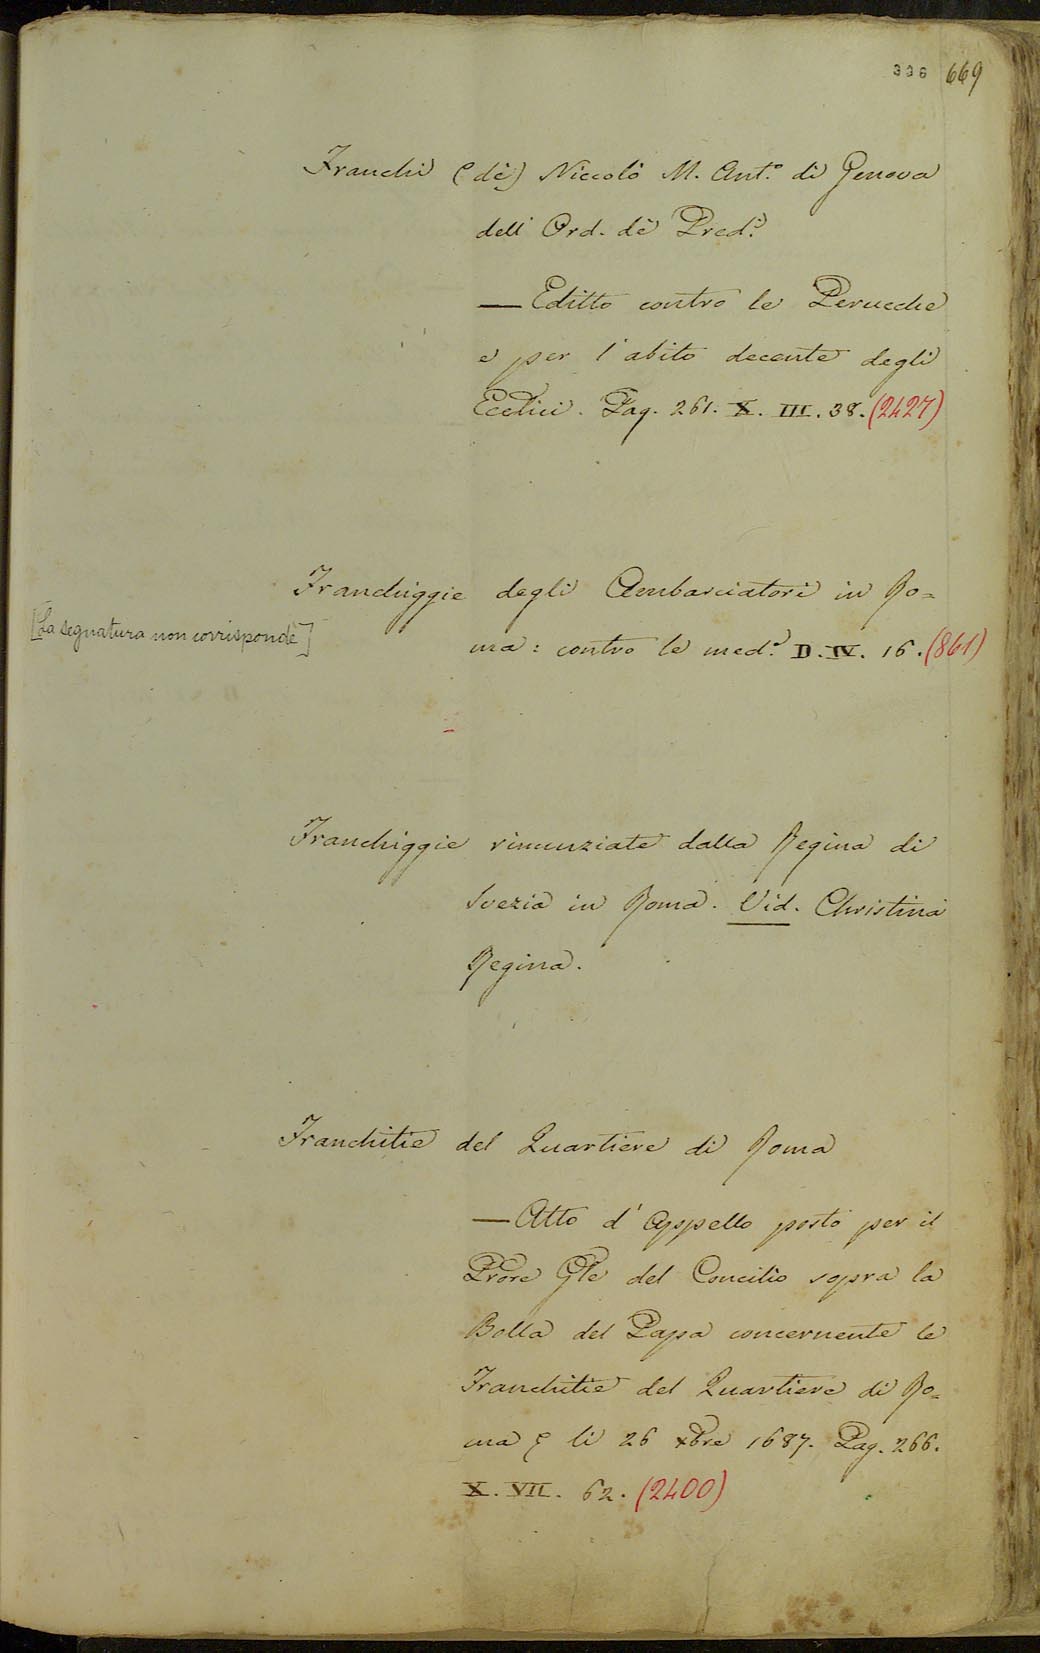 336 669
Franchi (dè) Niccolò M. Ant.º di Genova
dell' Ord. dè Pred.i
— Editto contro le Perucche
e per l'abito decente degli
Ecclici. Pag. 261. X. III. 38. (2427)
Franchiggie degli Ambasciatori in Ro=
[La segnatura non corrisponde]
ma: contro le med.e D. IV. 16. (861)
Franchiggie rinunziate dalla Regina di
Svezia in Roma. Vid. Christina
Regina.
Franchitie del Quartiere di Roma
— Atto d'Appello posto per il
Prore Gle del Concilio sopra la
Bolla del Papa concernente le
Franchitie del Quartiere di Ro=
ma li 26 xbre 1687. Pag. 266.
X. VII. 62. (2400)